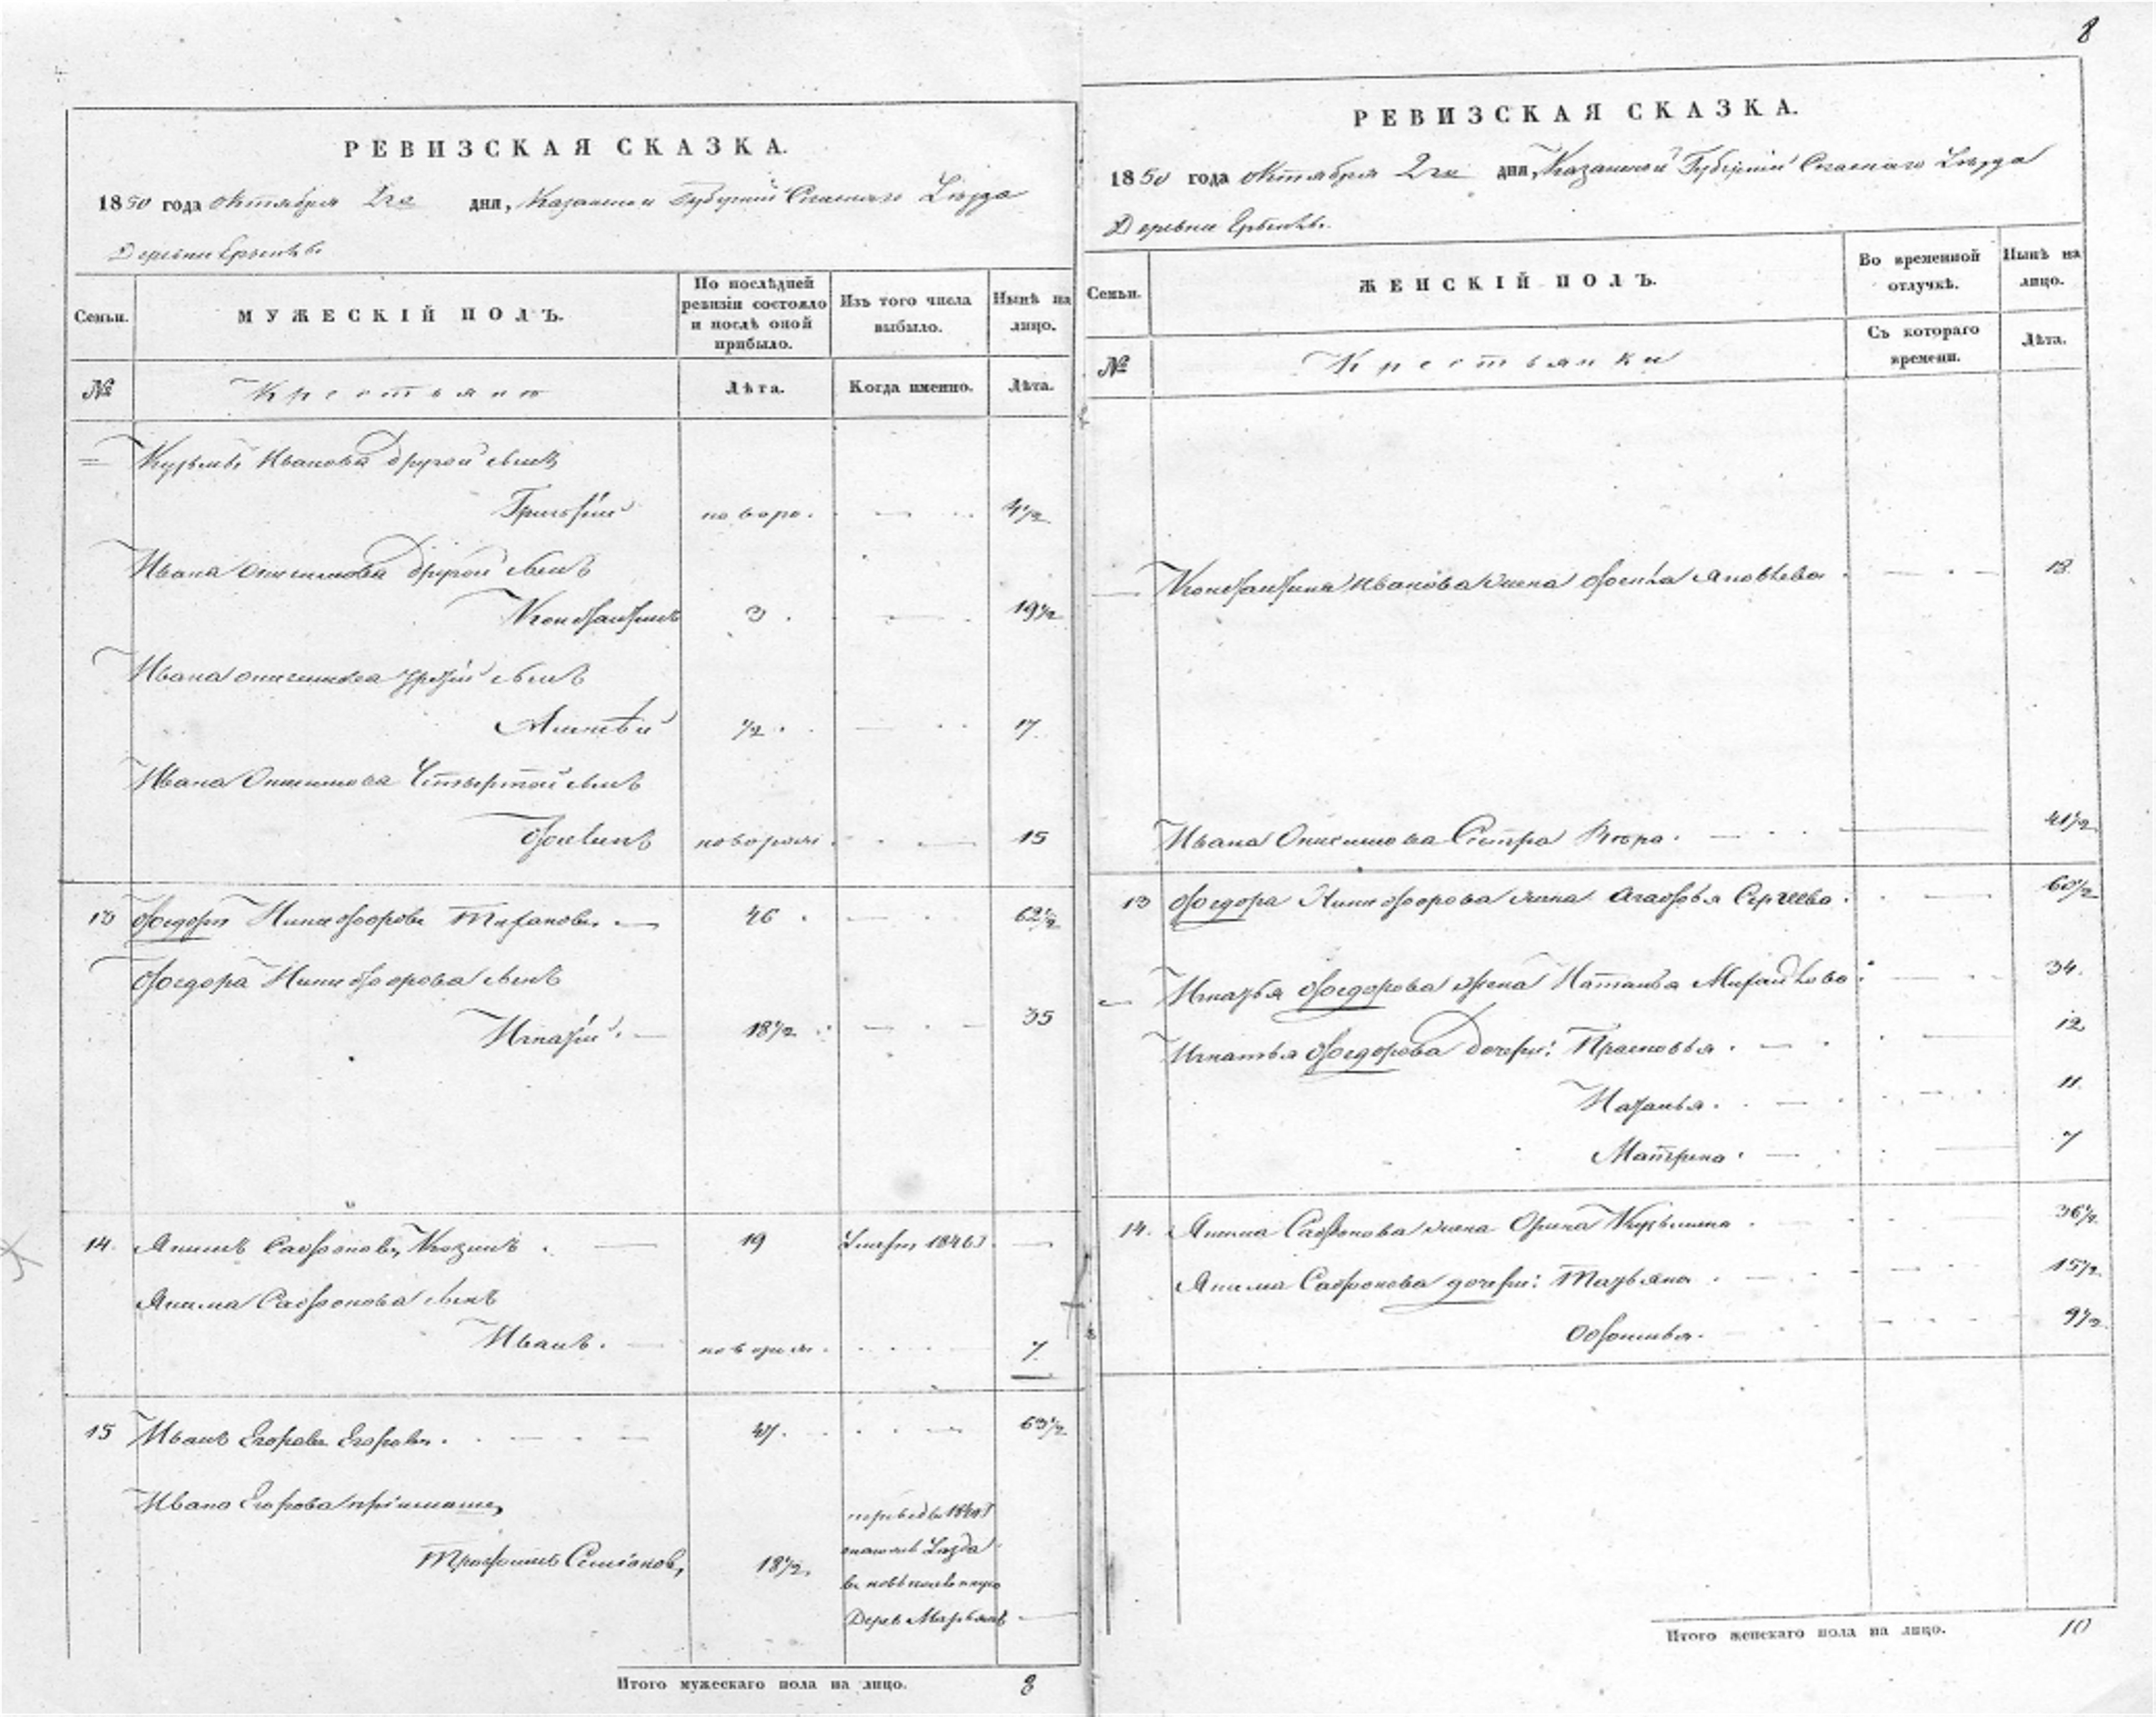 8
РЕВИЗСКАЯ СКАЗКА.
1850 года октября 2го дня, Казанской Губернiи Спаскаго Уѣзда
Деревни
Семьи.
МУЖЕСКІЙ ПОЛЪ.
По послѣдней ревизіи состояло и послѣ оной прибыло.
Изъ того числа выбыло.
Нынѣ на лицо.
№
Крестьяне
Лѣта.
Когда именно.
Лѣта.
Кузьмы Иванова другой сынъ
Григорій новоро. 4½
Ивана Онисимова другой сынъ
Константинъ 3 19½
Ивана Онисимова третій сынъ
Алексѣй ½ 17
Ивана Онисимова Четвертой сынъ
новорож 15
13 Федоръ Никифоровъ 46 62½
Федора Никифорова сынъ
Игнатій 18½ 35
14. Якимъ Сафроновъ 19 Умеръ 1846
Якима Сафронова сынъ
Иванъ. новорож. 7
15 Иванъ Егоровъ Егоровъ. 47. 63½
Ивана Егорова пріемышъ,
Трофимъ Семеновъ, 18½
Уѣзда
Дерев
Итого мужескаго пола на лицо. 8
РЕВИЗСКАЯ СКАЗКА.
1850 года октября 2го дня, Казанской Губернiи Спаскаго Уѣзда
Деревни
Семьи.
ЖЕНСКІЙ ПОЛЪ.
Во временной отлучкѣ.
Нынѣ на лицо.
№
Крестьянки
Съ котораго времени.
Лѣта.
Константина Иванова жена Яковлева 18
Ивана Онисимова Сестра 41½
13 Федора Никифорова жена Агафья Сергеева. 60½
Игнатья Федорова жена Наталья Михайлова 34.
Игнатья Федорова дочери: Прасковья. 12
Наталья. 11.
Матрена. 7
14. Якима Сафронова жена Орина Кузьмина 36½
Якима Сафронова дочери: Татьяна 15½
Офимья. 9½
Итого женскаго пола на лицо. 10